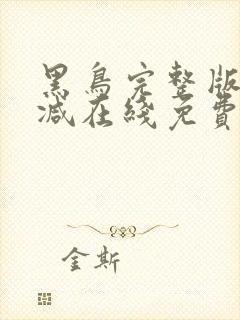 黑鳥完整版
減在綫免費
金斯